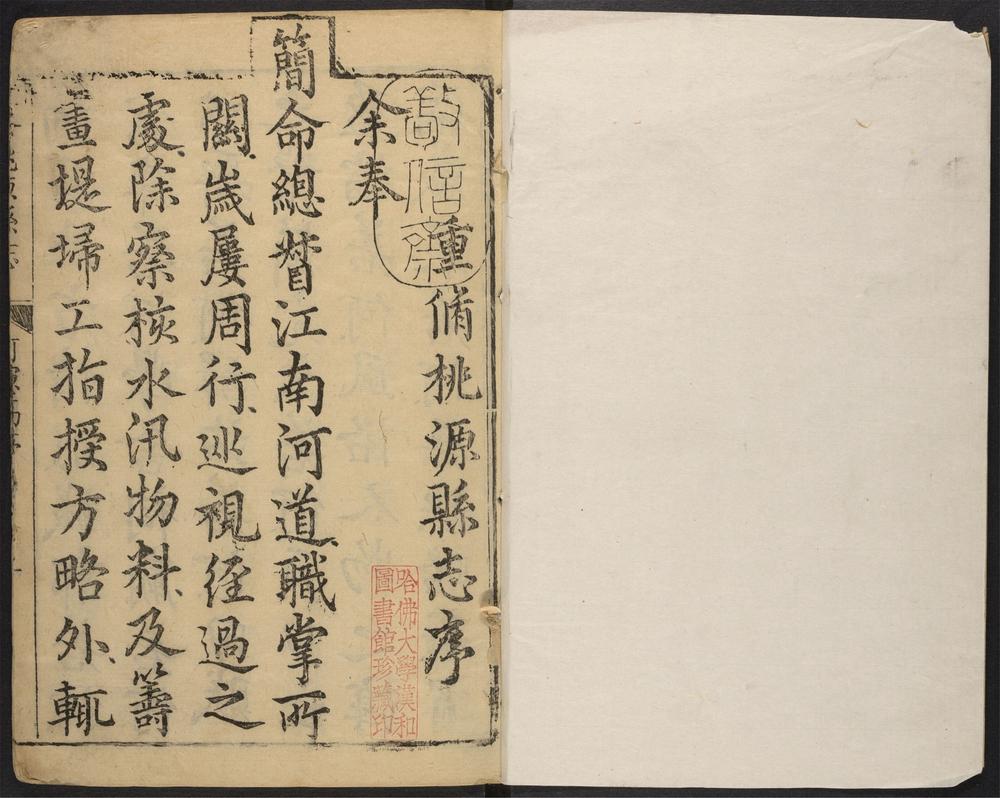 重脩桃源縣志序
余奉
簡命總督江南河道職掌所
關歲屢周行巡視經過之
處除察核水汛物料及籌
畫堤埽工指授方略外輒
敬信齋
哈佛大學漢和
圖書館珍藏印